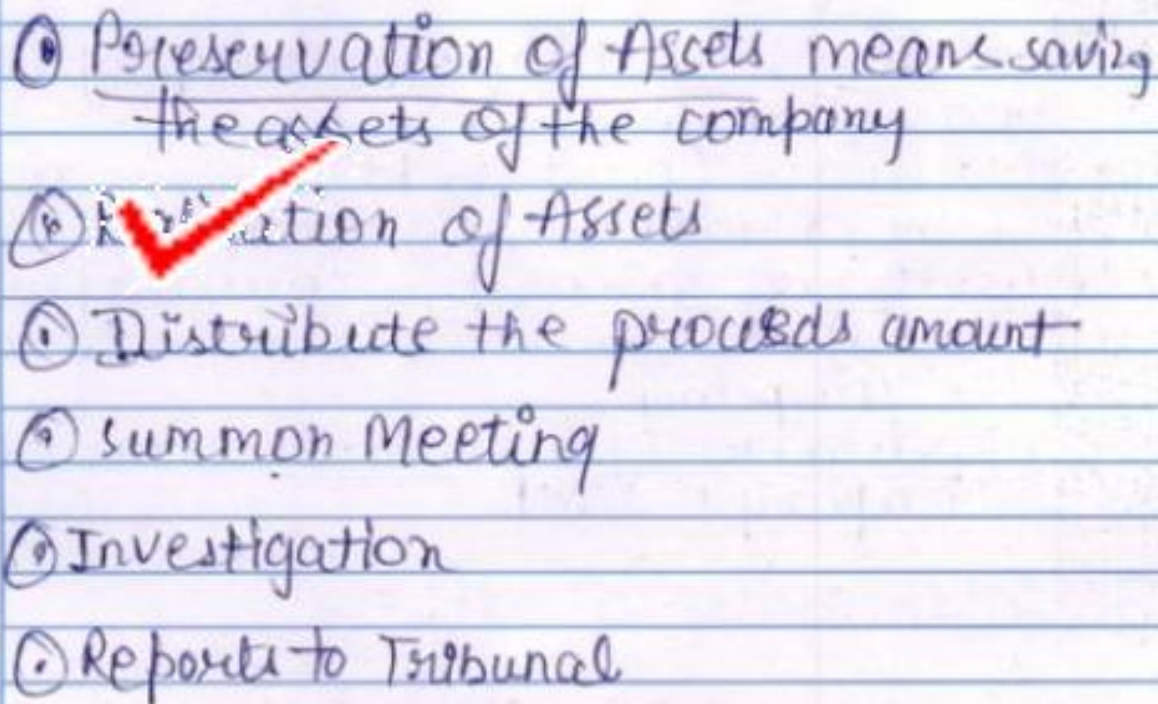 Preservation of Assets means saving
the assets of the company
of Assets
Distribute the proceeds amount
Summon Meeting
Investigation
Reports to Tribunal